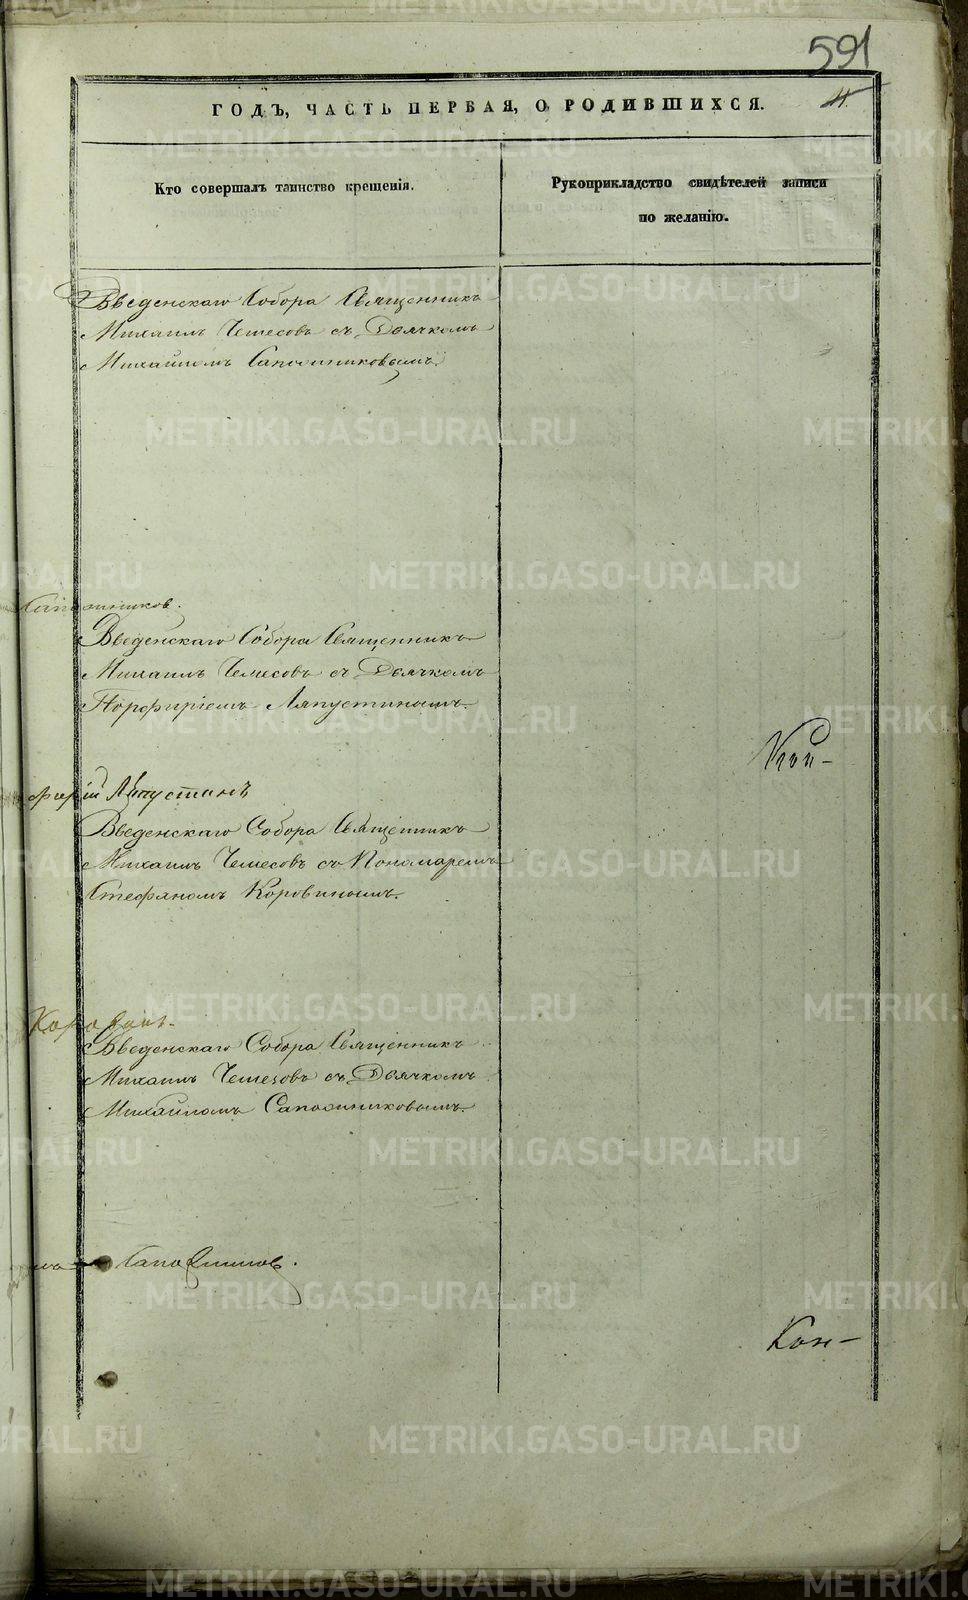 591
4
ГОДЪ, ЧАСТЬ ПЕРВАЯ, О РОДИВШИХСЯ.
Кто совершалъ таинство крещенія.
Рукоприкладство свидѣтелей записи
по желанію.
Введенскаго Собора Священникъ
Михаилъ Чемесовъ съ Дьячкомъ
Михайломъ Сапожниковымъ.
Сапожников.
Введенскаго Собора Священникъ
Михаилъ Чемесовъ съ Дьячкомъ
Порфиріемъ Ляпустинымъ.
фирій Ляпустинъ
Введенскаго Собора Священникъ
Михаилъ Чемесовъ съ Пономаремъ
Стефаномъ Коровинымъ.
Коровинъ.
Введенскаго Собора Священникъ
Михаилъ Чемесовъ съ Дьячкомъ
Михайломъ Сапожниковымъ.
Сапожников.
Кон-
METRIKI.GASO-URAL.RU